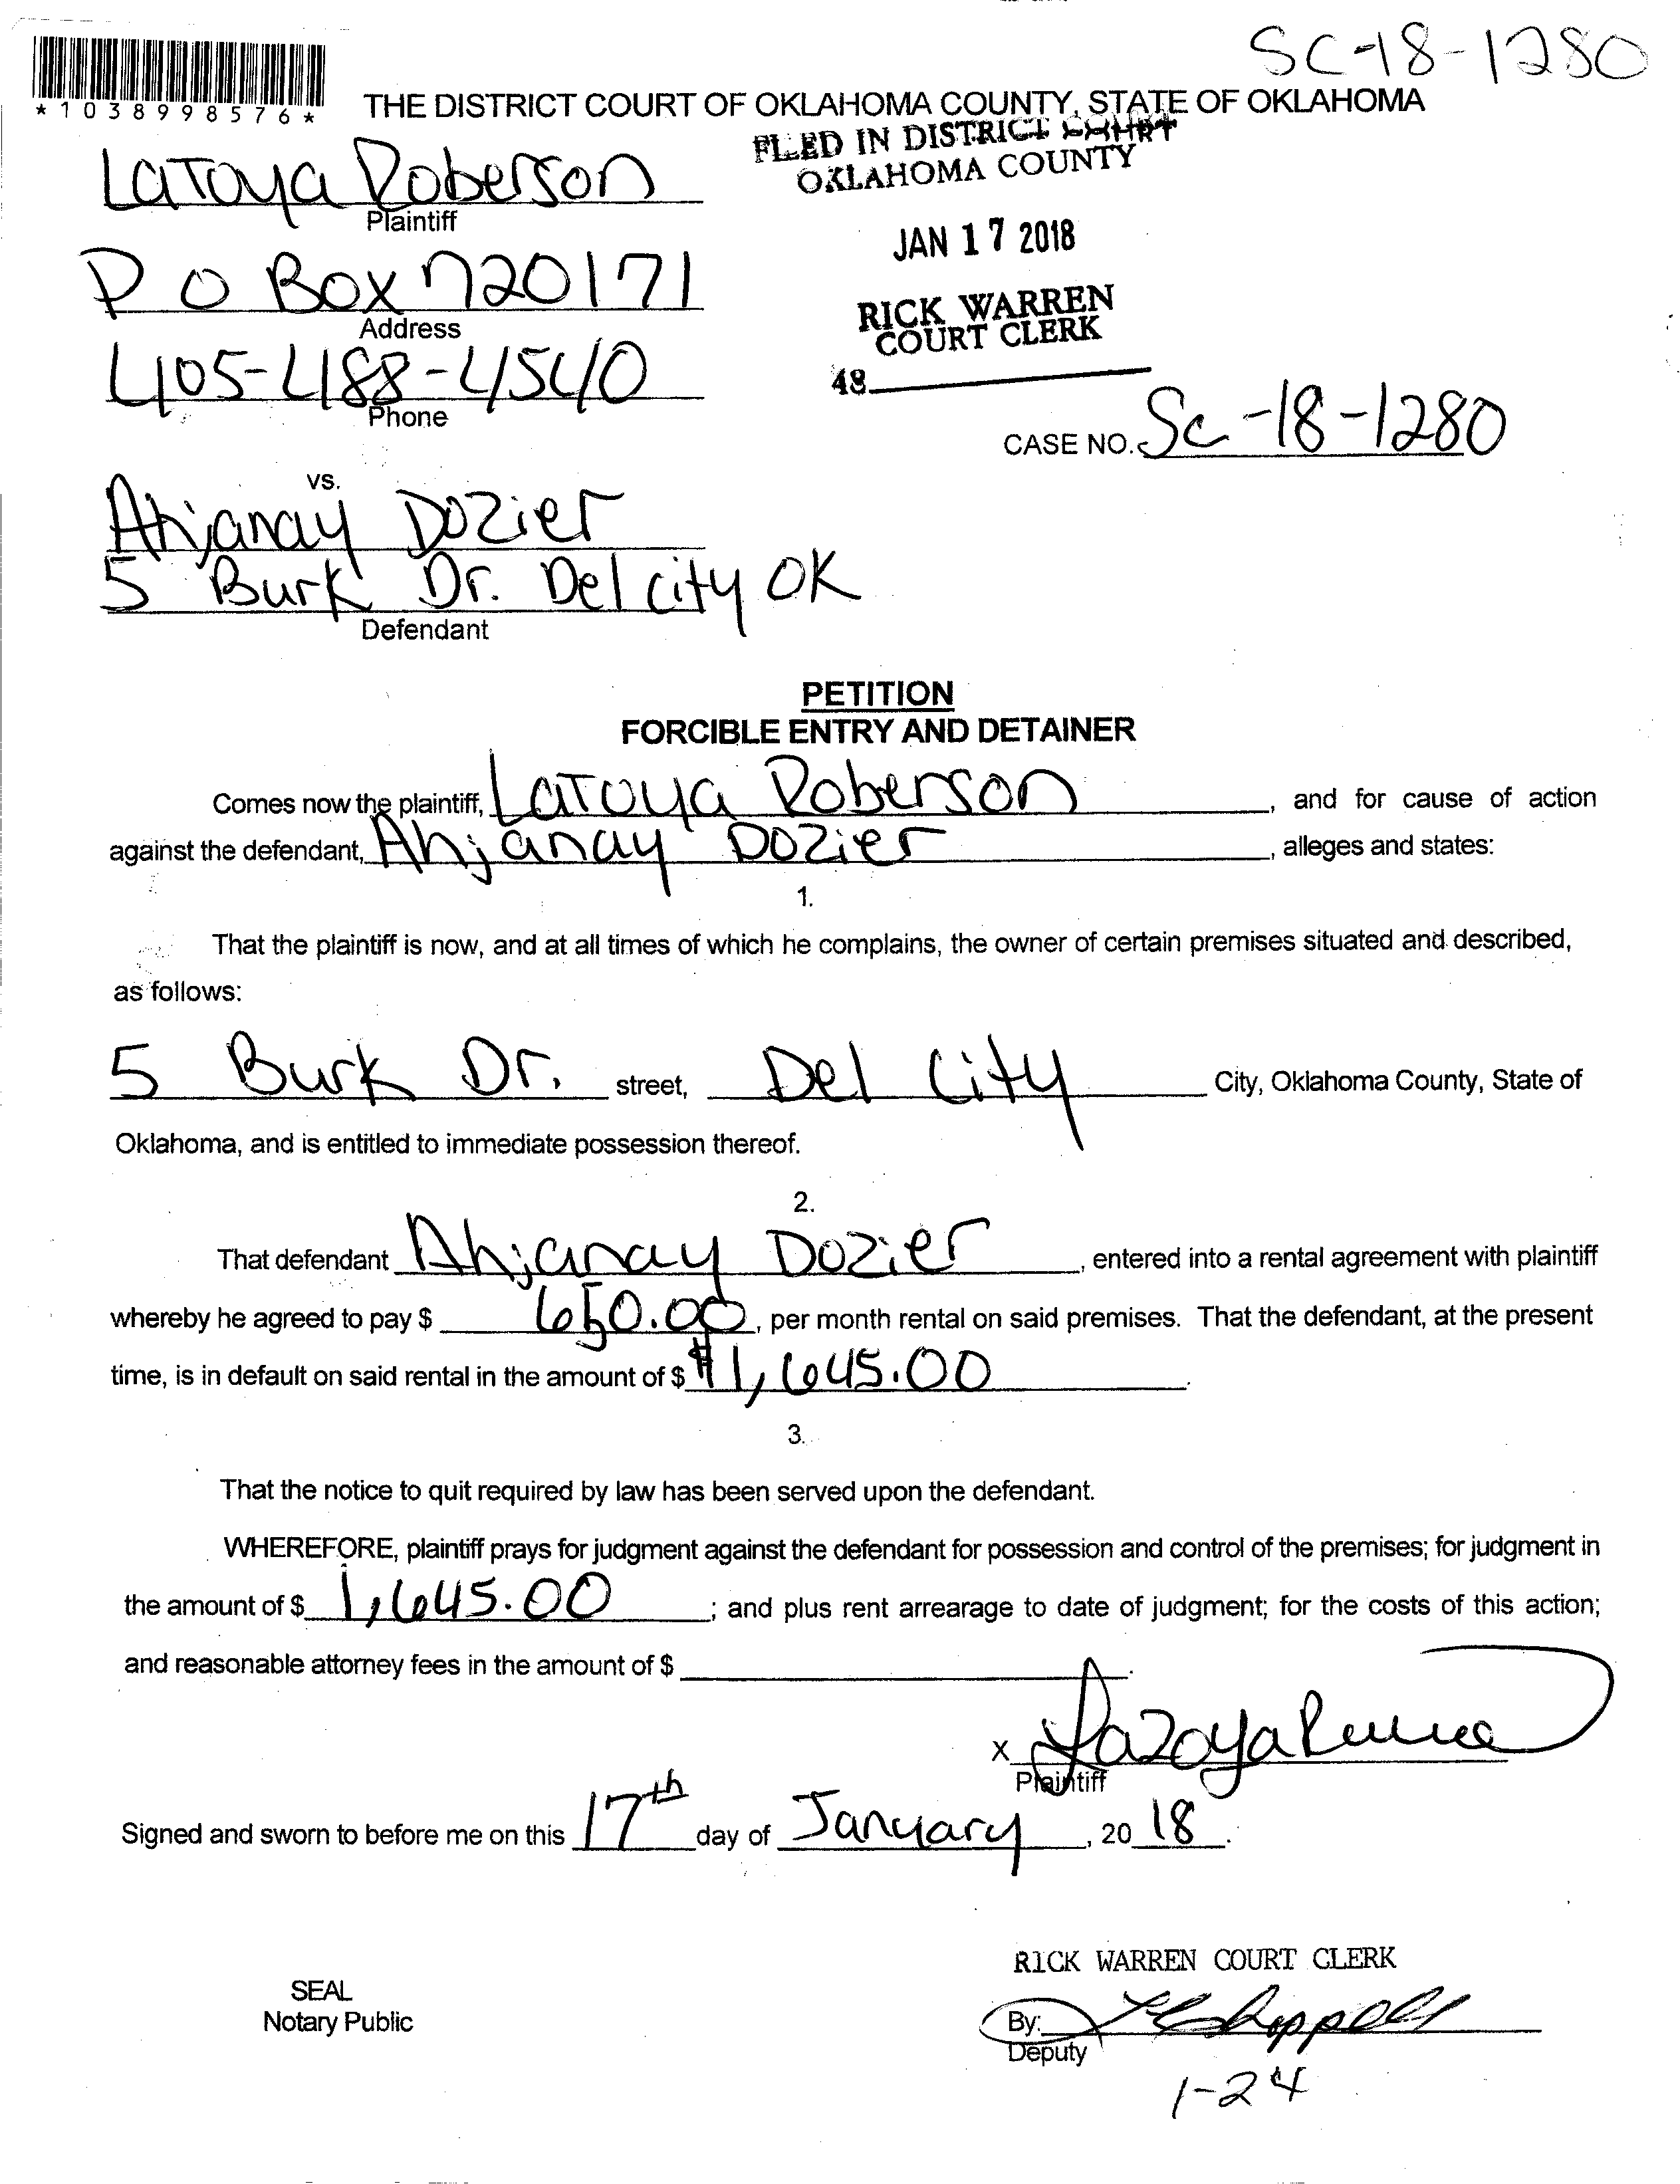 SC-18-1280
*1038998576*
THE DISTRICT COURT OF OKLAHOMA COUNTY, STATE OF OKLAHOMA
FILED IN DISTRICT COURT
OKLAHOMA COUNTY
LaToya Roberson
Plaintiff
JAN 17 2018
P O Box 720171
Address
RICK WARREN
COURT CLERK
405-488-4540
Phone
48
CASE NO. SC-18-1280
vs.
Ahjanay Dozier
5 Burk Dr. Del city OK
Defendant
PETITION
FORCIBLE ENTRY AND DETAINER
Comes now the plaintiff, LaToya Roberson, and for cause of action
against the defendant, Ahjanay Dozier, alleges and states:
1.
That the plaintiff is now, and at all times of which he complains, the owner of certain premises situated and described,
as follows:
5 Burk Dr. street, Del City City, Oklahoma County, State of
Oklahoma, and is entitled to immediate possession thereof.
2.
That defendant Ahjanay Dozier, entered into a rental agreement with plaintiff
whereby he agreed to pay $ 650.00, per month rental on said premises. That the defendant, at the present
time, is in default on said rental in the amount of $ $1,645.00.
3.
That the notice to quit required by law has been served upon the defendant.
WHEREFORE, plaintiff prays for judgment against the defendant for possession and control of the premises; for judgment in
the amount of $ 1,645.00; and plus rent arrearage to date of judgment; for the costs of this action;
and reasonable attorney fees in the amount of $ .
X LaToya
Plaintiff
Signed and sworn to before me on this 17th day of January, 20 18.
RICK WARREN COURT CLERK
SEAL
Notary Public
By:
Deputy
1-24